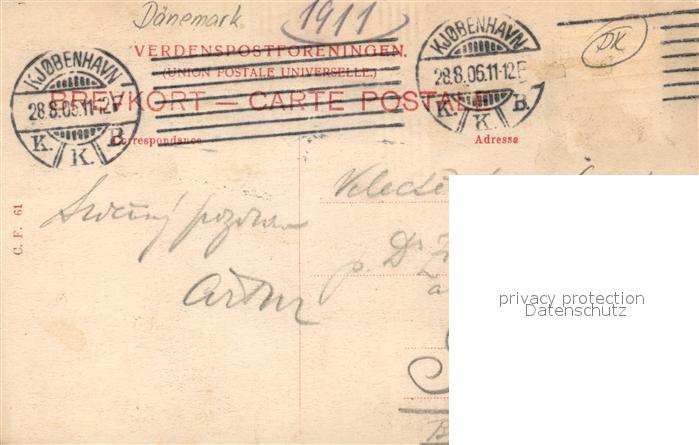 Dänemark
1911
DK
VERDENSPOSTFORENINGEN.
(UNION POSTALE UNIVERSELLE.)
BREVKORT — CARTE POSTALE
KJØBENHAVN
28.8.06.11-12F
K. K. B.
KJØBENHAVN
28.8.06.11-12F
K. K. B.
Correspondance
Adresse
Srdečný pozdrav
Artur
p. Dr
C. F. 61
privacy protection
Datenschutz